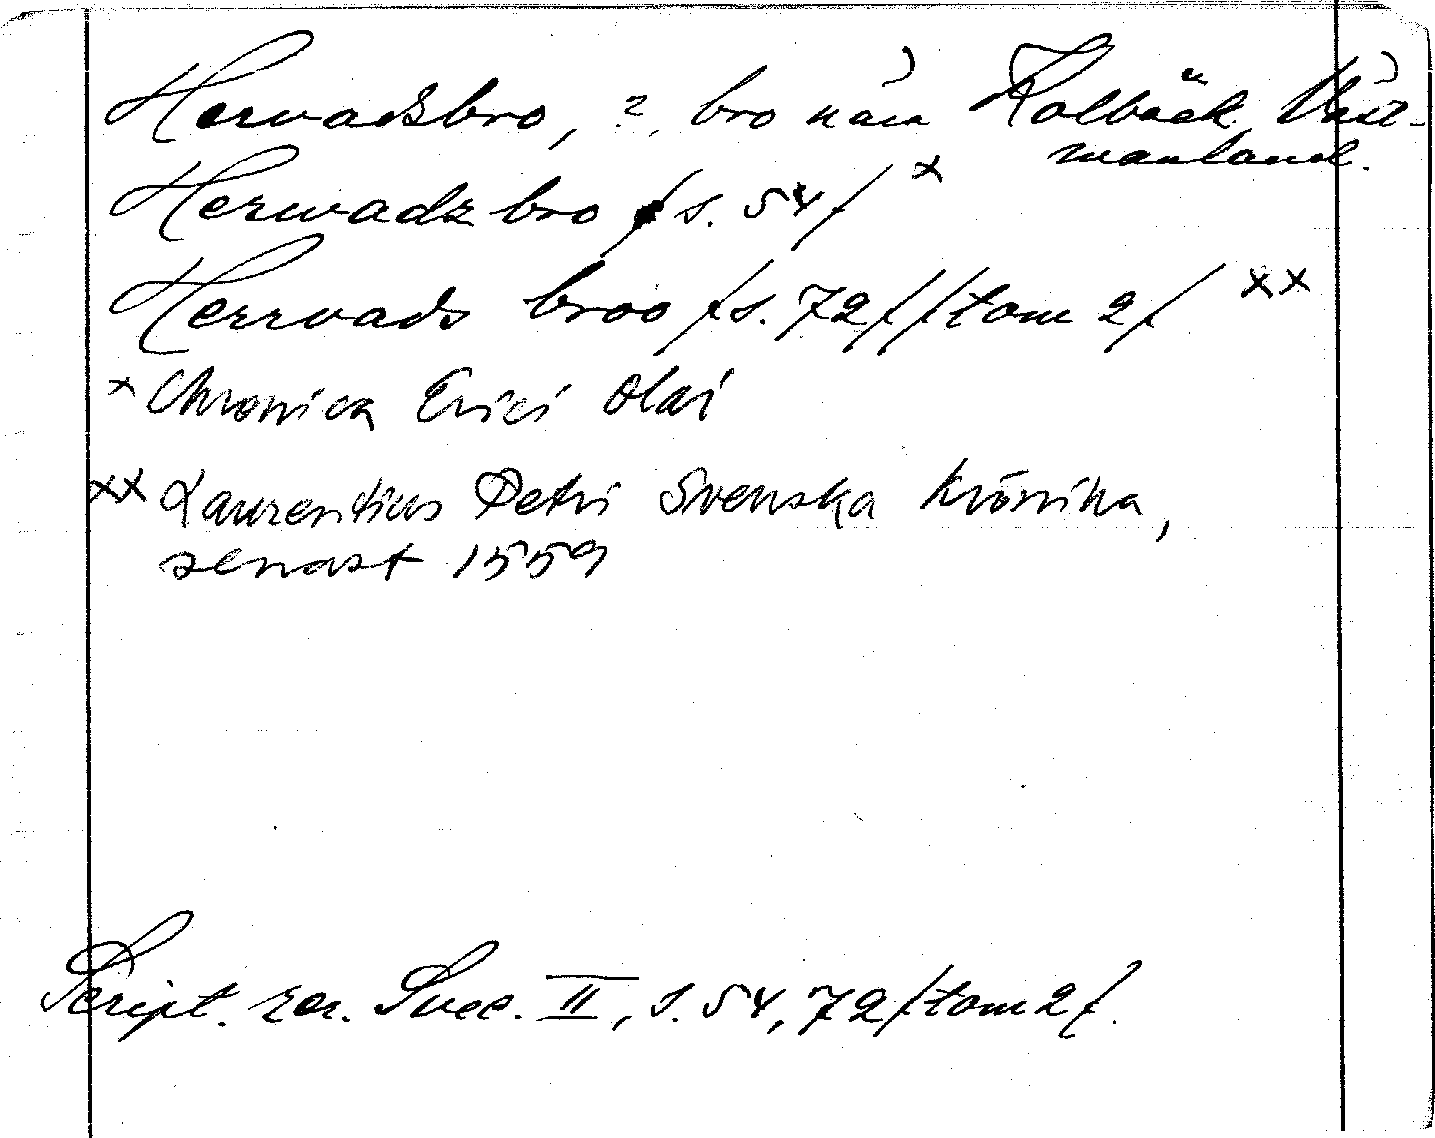 Hervadsbro, ?, bro nära Kolbäck, Väst-
manland.
Herwadz bro /s. 54/ x
Herrvads broo /s. 72/ /tom 2/ xx
x Chronica Erici Olai
xx Laurentius Petri Svenska krönika,
senast 1559
Script. rer. Svec. II, s. 54, 72/tom 2/.